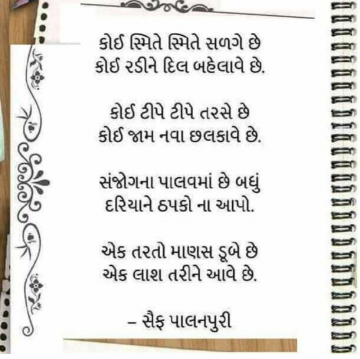 કોઈ સ્મિતે સ્મિતે સળગે છે
કોઈ રડીને દિલ બહેલાવે છે.
કોઈ ટીપે ટીપે તરસે છે
કોઈ જામ નવા છલકાવે છે.
સંજોગના પાલવમાં છે બધું
દરિયાને ઠપકો ના આપો.
એક તરતો માણસ ડૂબે છે
એક લાશ તરીને આવે છે.
– સૈફ પાલનપુરી